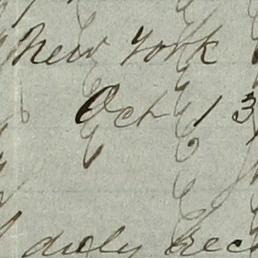 New York
Oct 13
duly rec